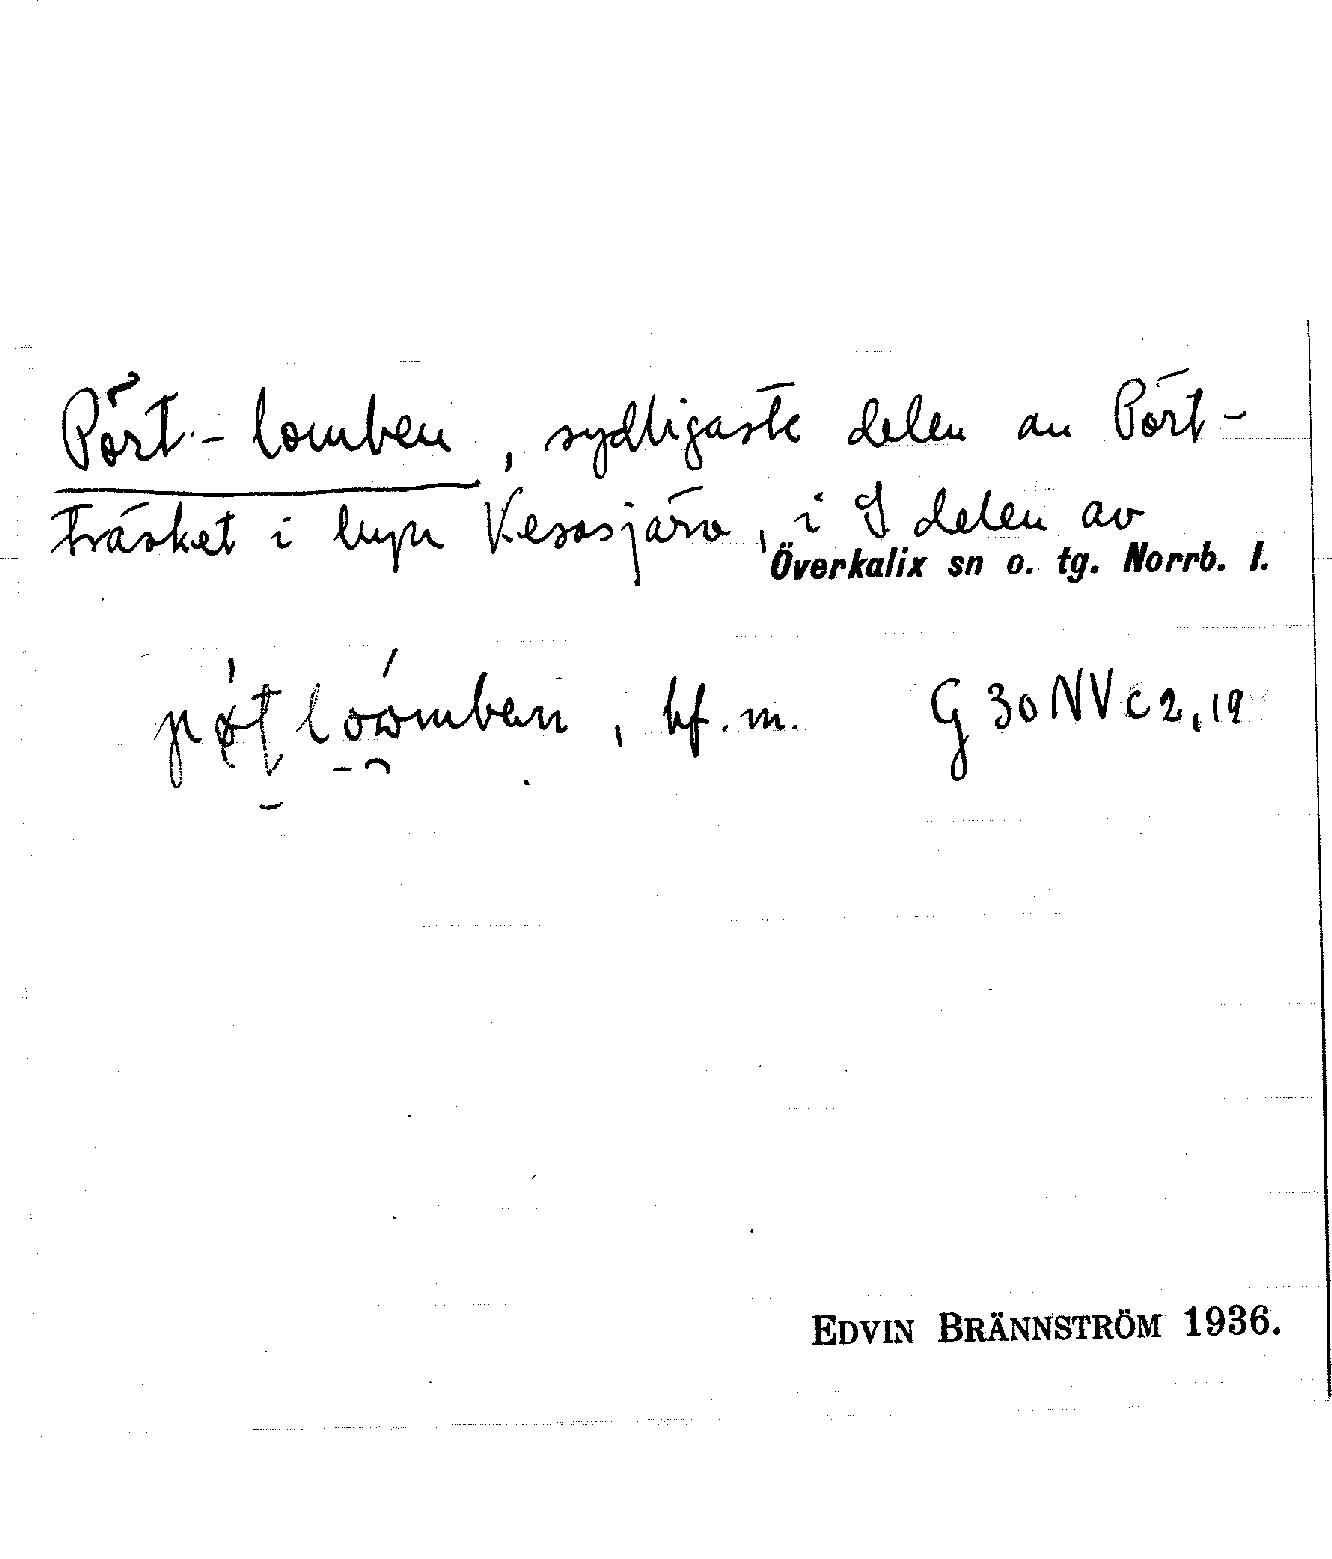 Pört-lomben, sydligaste delen av Pört-
träsket i byn Kesasjärv, i S delen av
Överkalix sn o. tg. Norrb. l.
bf. m. G 30 NV c 2, 19
EDVIN BRÄNNSTRÖM 1936.